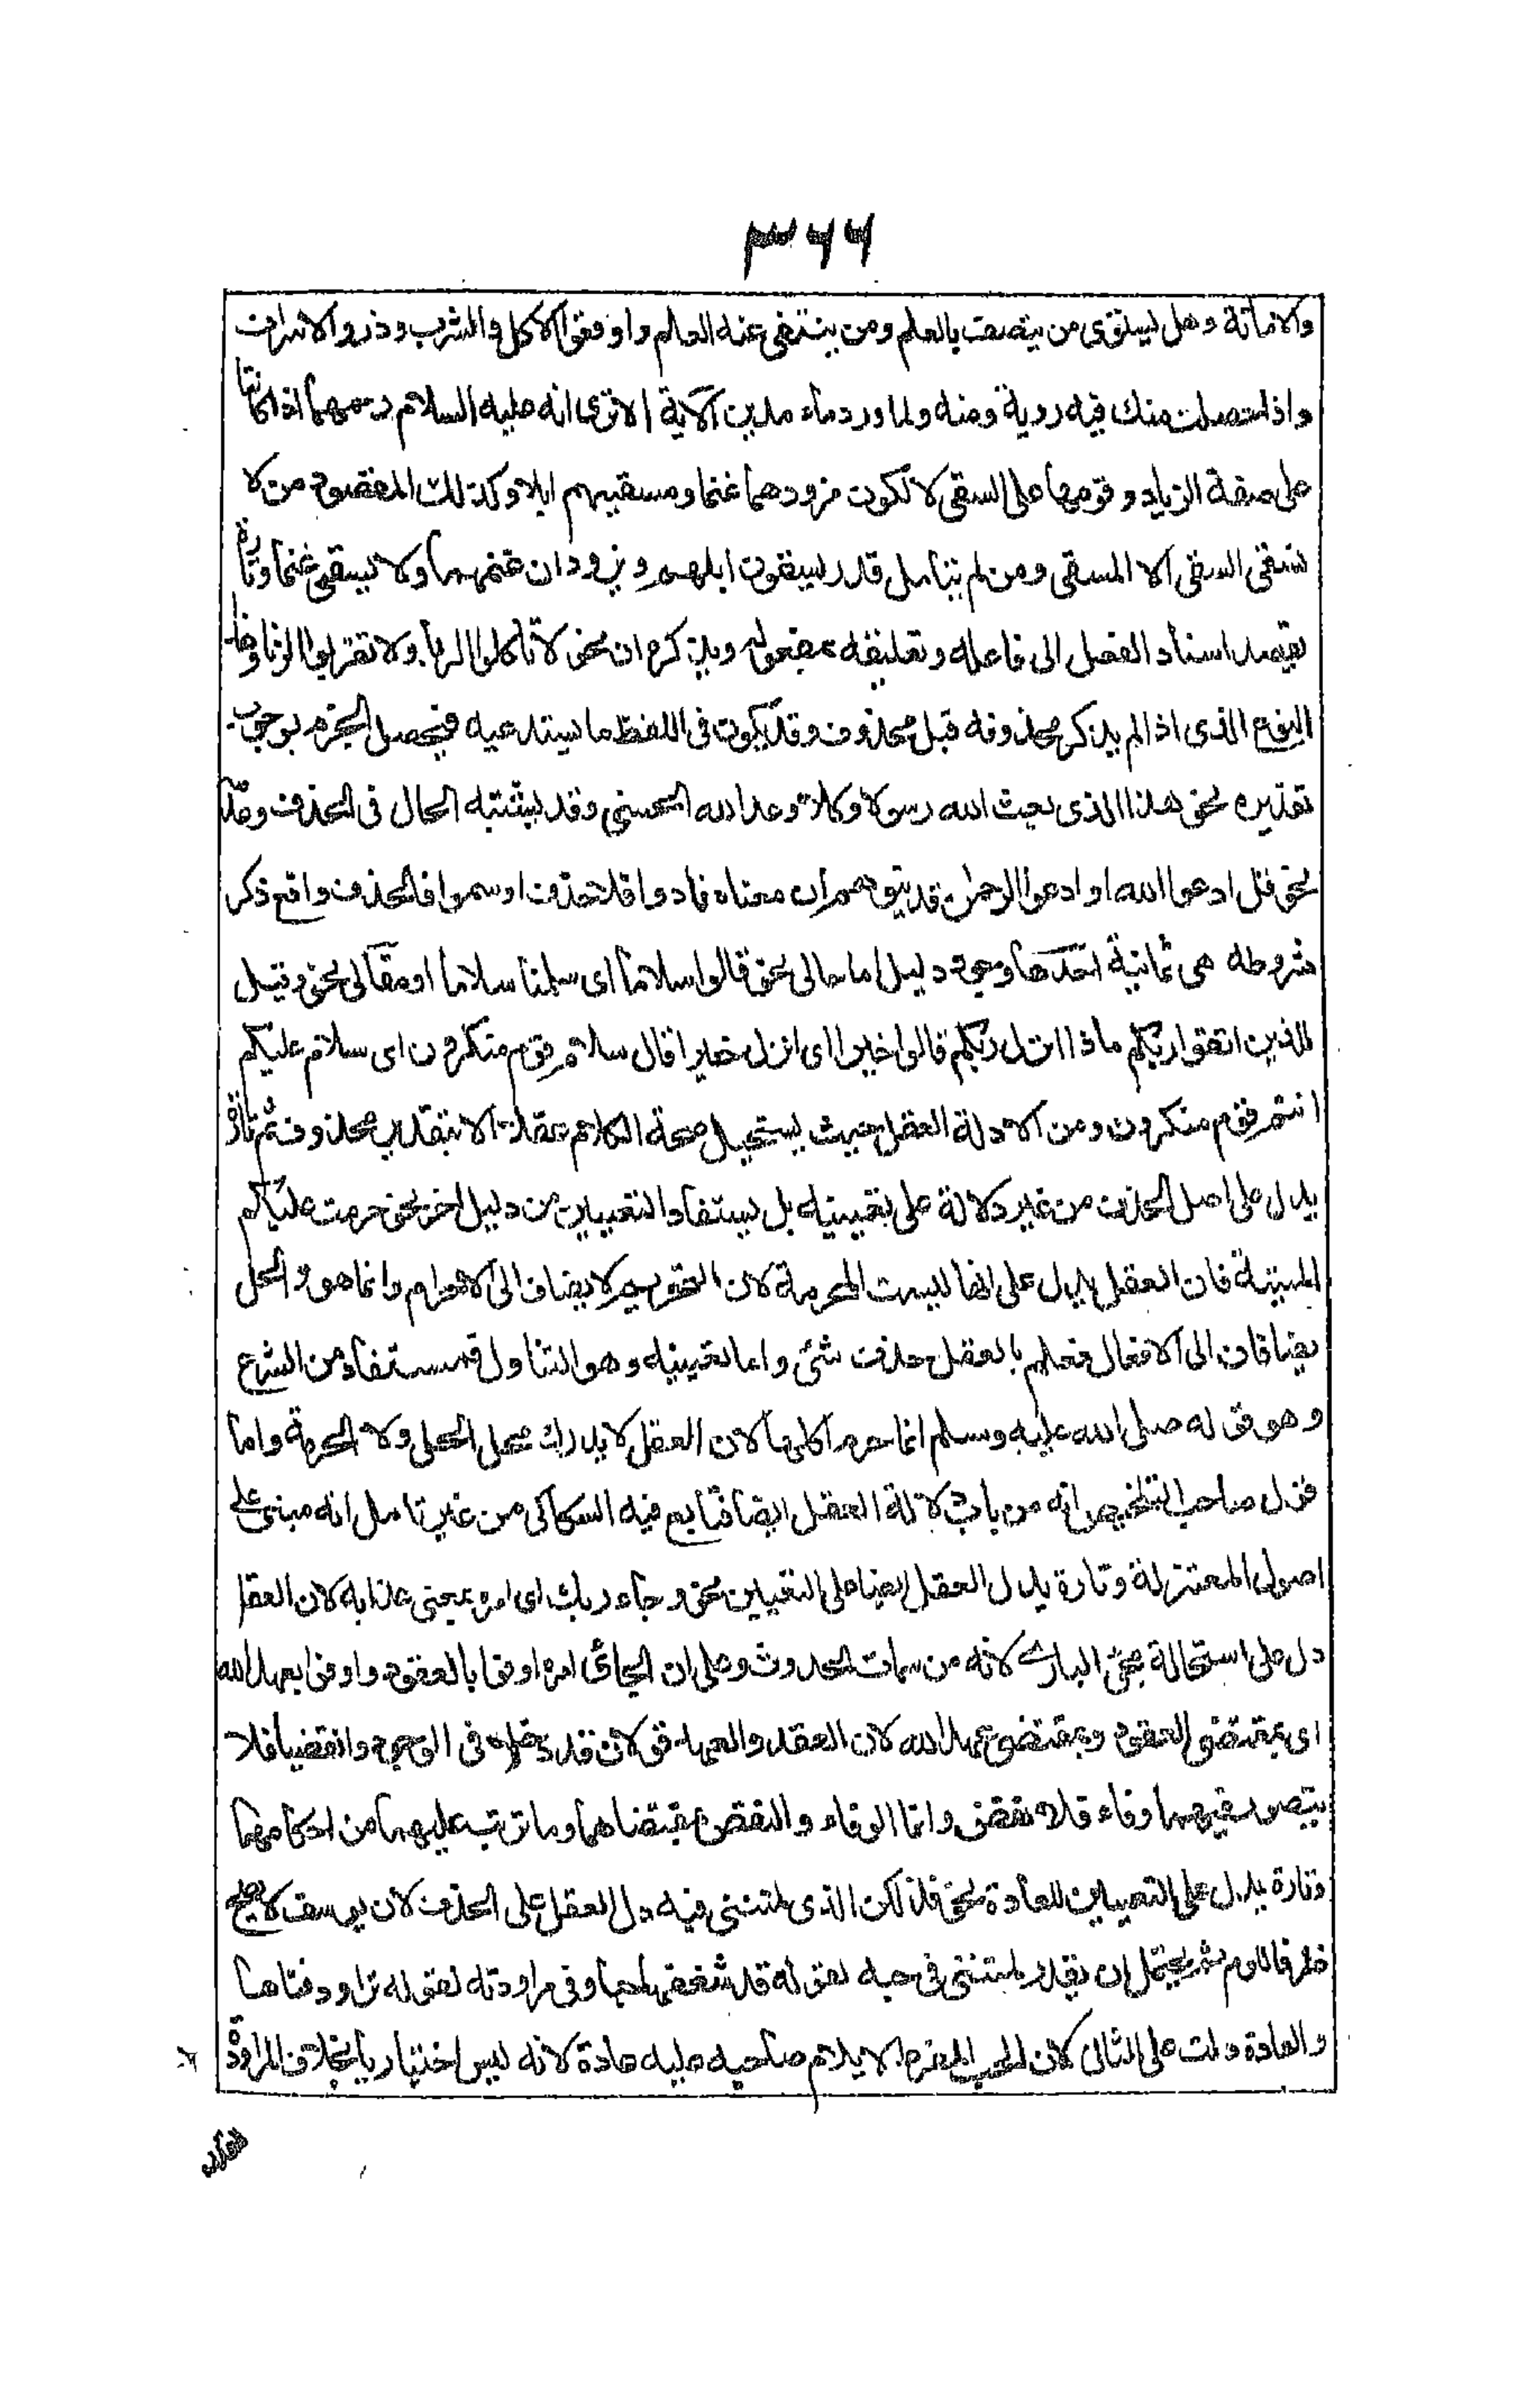 ٣٦٦
والاماتة وهل يستوى من يتصف بالعلم ومن ينتفى عنه العلم واوقعوا الاكل والشرب وذروا الاسراف
واذا حصلت منك فيه روية ومنه ولما ورد ماء مدين الآية الا ترى انه عليه السلام رحمهما اذ كانتا
على صفة الزياد وقومهما على السقى لا لكون مزودهما غنما ومسقيهم ابلا وكذلك المقصود من لا
نسقى السقى لا المسقى ومن لم يتامل قدر يسقون ابلهم وتزودان غنمهما ولا نسقى غنما وتارة
يقصد اسناد الفعل الى فاعله وتعليقه بمفعوله ويذكران نحو لا تاكلوا الربا ولا تقربوا الزنا وهذا
النوع الذى اذا لم يذكر محذوفه قيل محذوف وقد يكون فى اللفظ ما يستدعيه فيحصل الجزم بوجوب
تقديره نحو هذا الذى بعث الله رسولا وكلا وعد الله الحسنى وقد يشتبه الحال فى الحذف وعدمه
نحو قل ادعوا الله او ادعوا الرحمن قد يتوهم ان معناه نادوا فلا حذف او سموا فالحذف واقع ذكر
شروطه هى ثمانية احدها وجود دليل اما حالى نحو قالوا سلاما اى سلمنا سلاما او مقالى نحو وقيل
للذين اتقوا ربكم ماذا انزل ربكم قالوا خيرا اى انزل خيرا قال سلام قوم منكرون اى سلام عليكم
انتم قوم منكرون ومن الادلة العقل حيث يستحيل صحة الكلام عقلا الا بتقدير محذوف ثم تارة
يدل على اصل الحذف من غير دلالة على تعيينه بل يستفاد التعيين من دليل اخر نحو حرمت عليكم
الميتة فان العقل يدل على انها ليست المحرمة لان التحريم لا يضاف الى الاجرام وانما هو والحل
يضافان الى الافعال فعلم بالعقل حذف شئ واما تعيينه وهو التناول فمستفاد من الشرع
وهو قوله صلى الله عليه وسلم انما حرم اكلها لان العقل لا يدرك محل الحل ولا الحرمة واما
قول صاحب التلخيص انه من باب دلالة العقل ايضا فتابع فيه السكاكى من غير تامل انه مبنى على
اصول المعتزلة وتارة يدل العقل ايضا على التعيين نحو وجاء ربك اى امره بمعنى عذابه لان العقل
دل على استحالة مجئ البارى لانه من سمات الحدوث وعلى ان الجائى امره اوفوا بالعقود واوفوا بعهد الله
اى بمقتضى العقود وبمقتضى عهد الله لان العقد والعهد قولان قد دخلا فى الوجود وانقضيا فلا
يتصور فيهما وفاء ولا نقض وانما الوفاء والنقض بمقتضاهما وما ترتب عليهما من احكامهما
وتارة يدل على التعيين العادة نحو فذلكن الذى لمتننى فيه دل العقل على الحذف لان يوسف لا يصح
ظرفا للوم ثم يحتمل ان يقدر لمتننى فى حبه لقوله قد شغفها حبا وفى مراودته لقوله تراود فتاها
والعادة دلت على الثانى لان الحب المفرط لا يلام صاحبه عليه عادة لانه ليس اختياريا بخلاف المراودة